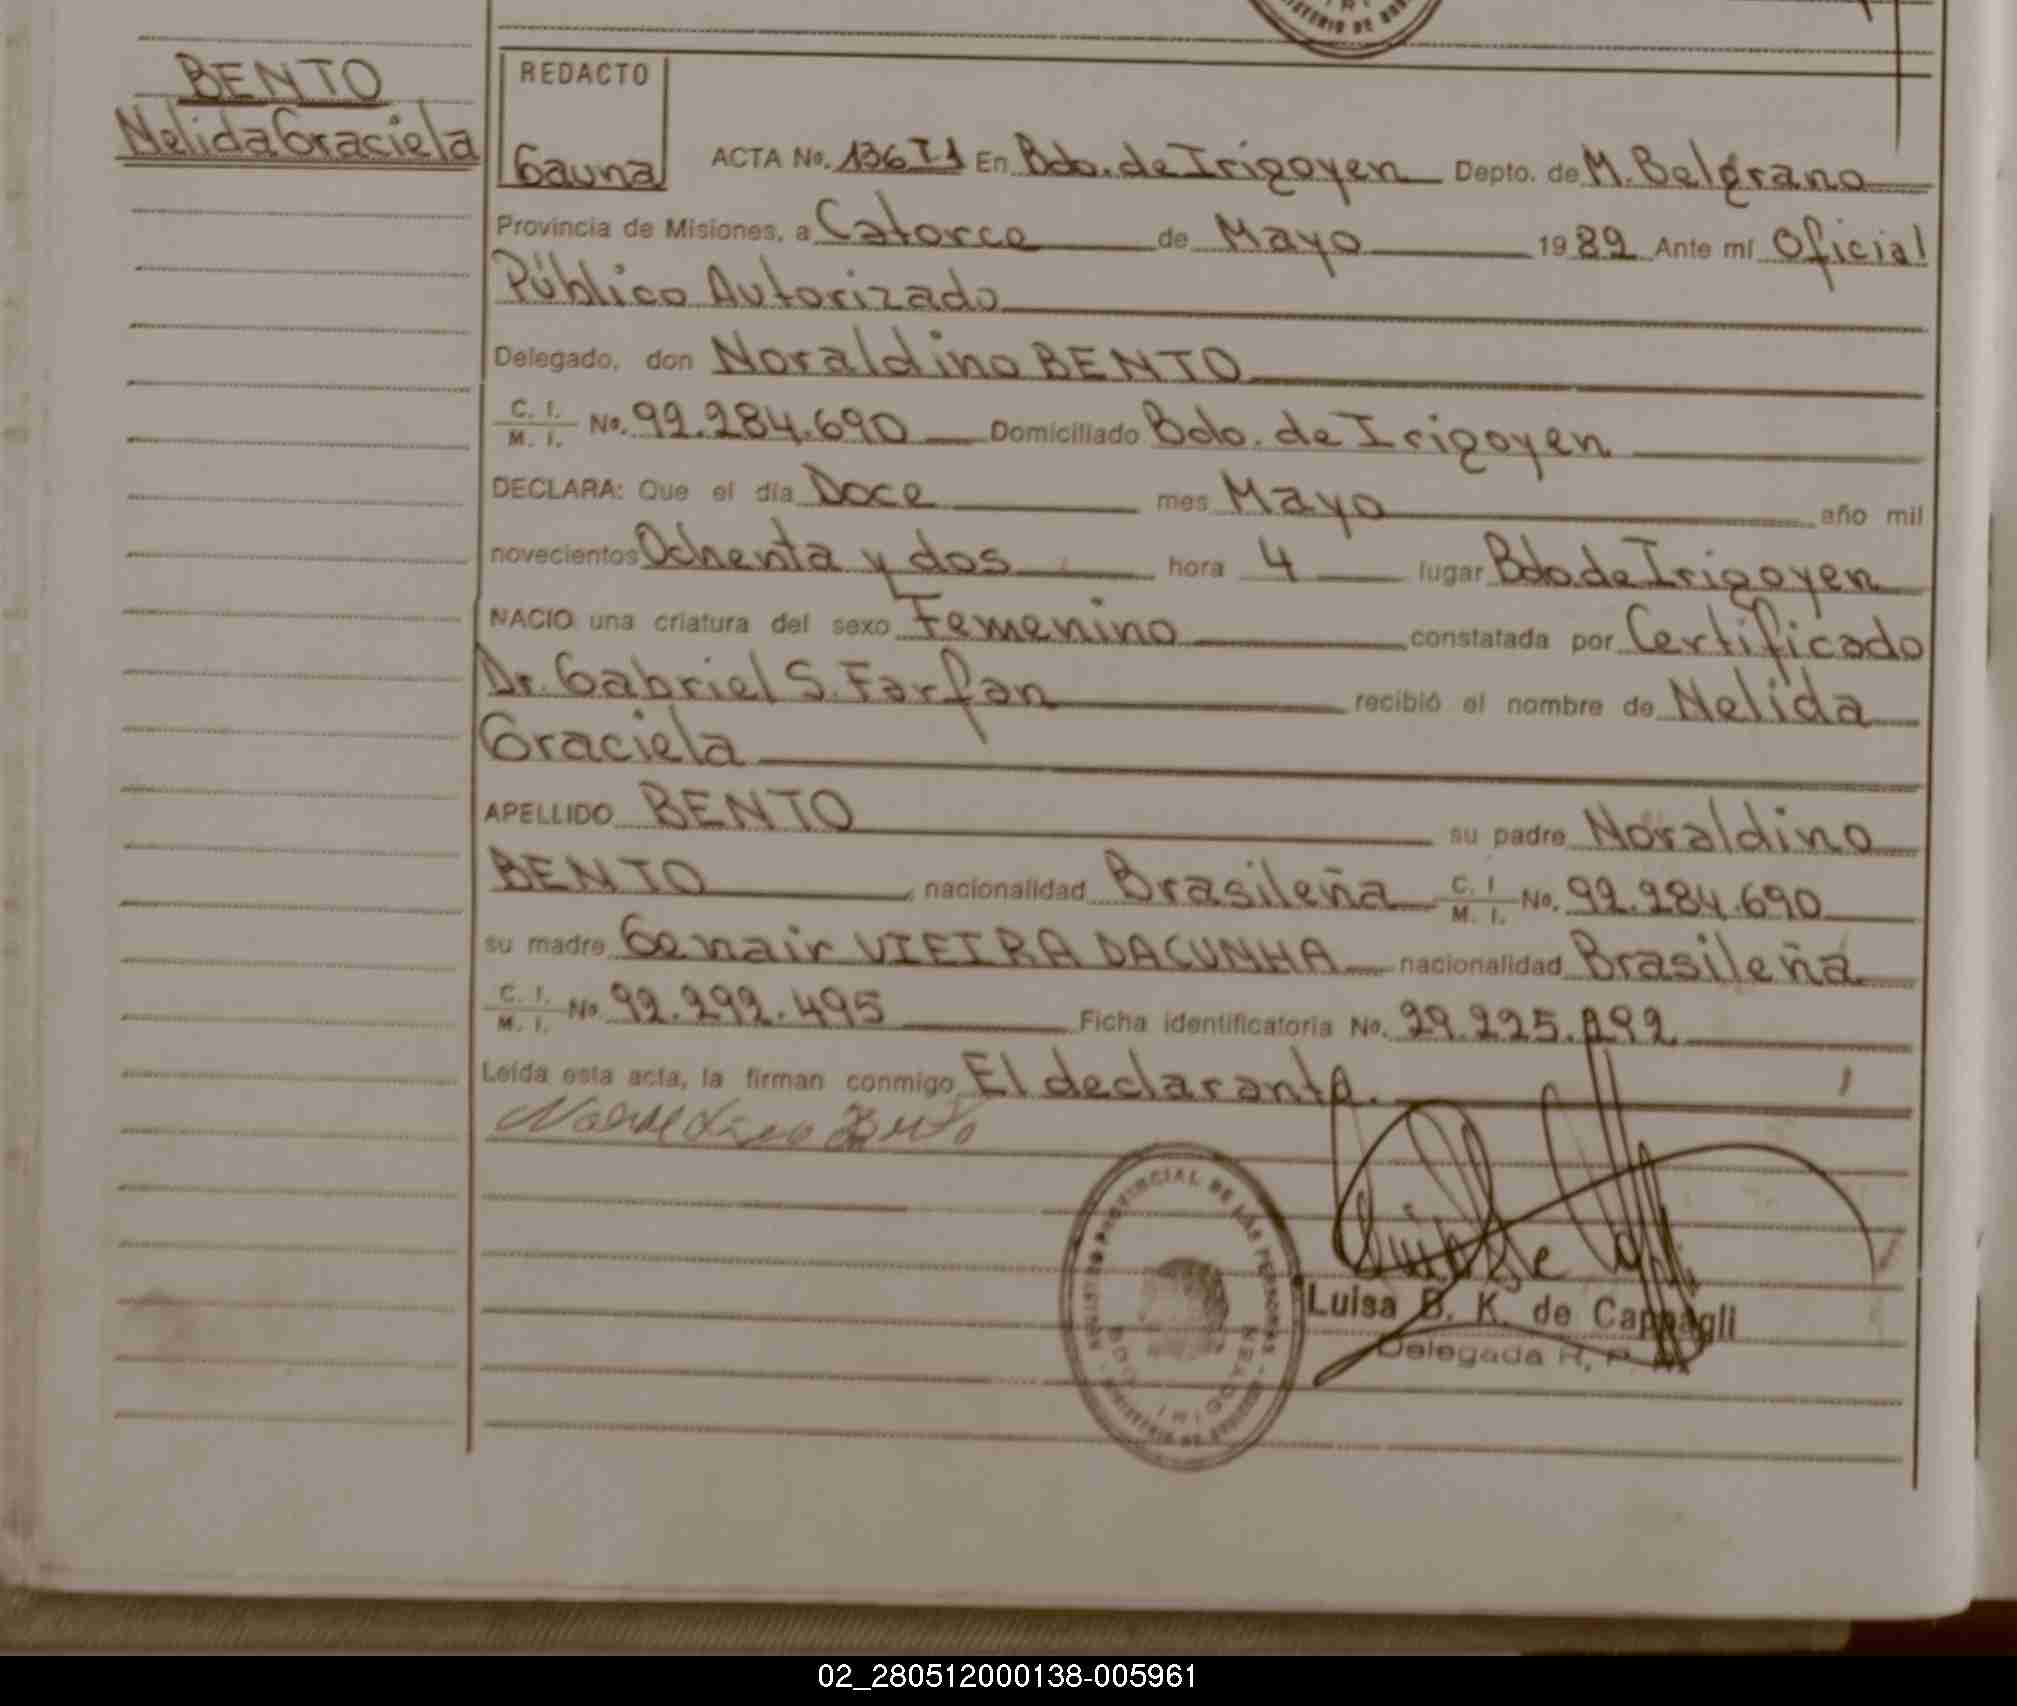 BENTO
Nelida Graciela
REDACTO
Gauna
ACTA No. 136 T1 En Bdo. de Irigoyen Depto. de M. Belgrano
Provincia de Misiones, a Catorce de Mayo 1982 Ante mí Oficial
Público Autorizado
Delegado, don Noraldino BENTO
C. I. / M. I. No. 92.284.690 Domiciliado Bdo. de Irigoyen
DECLARA: Que el día Doce mes Mayo año mil
novecientos Ochenta y dos hora 4 lugar Bdo de Irigoyen
NACIO una criatura del sexo Femenino constatada por Certificado
Dr. Gabriel S. Farfan recibió el nombre de Nelida
Graciela
APELLIDO BENTO su padre Noraldino
BENTO, nacionalidad Brasileña C. I / M. I. No. 92.284.690
su madre Genair VIEIRA DACUNHA nacionalidad Brasileña
C. I. / M. I. No 92.292.495 Ficha identificatoria No. 29.225.292
Leída esta acta, la firman conmigo El declarante.
PROVINCIAL DE LAS PERSONAS
Luisa B. K. de Cappagli
Delegada R. P.
02_280512000138-005961